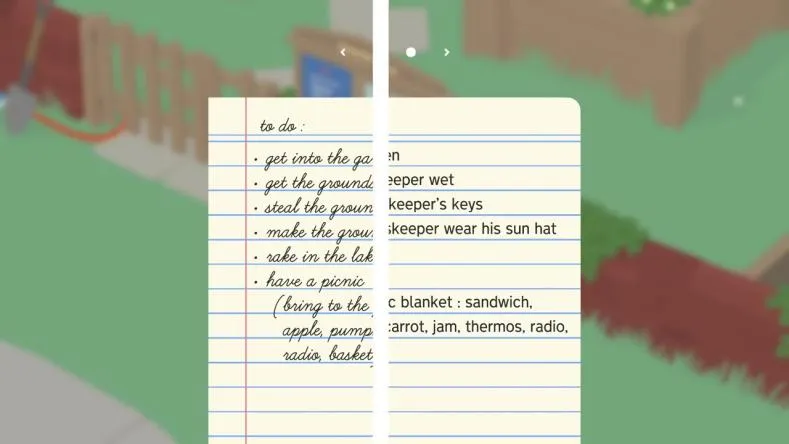 to do :
• get into the ga en
• get the grounds eeper wet
• steal the groun keeper's keys
• make the grou skeeper wear his sun hat
• rake in the lak
• have a picnic
(bring to the c blanket : sandwich,
apple, pump carrot, jam, thermos, radio,
radio, basket